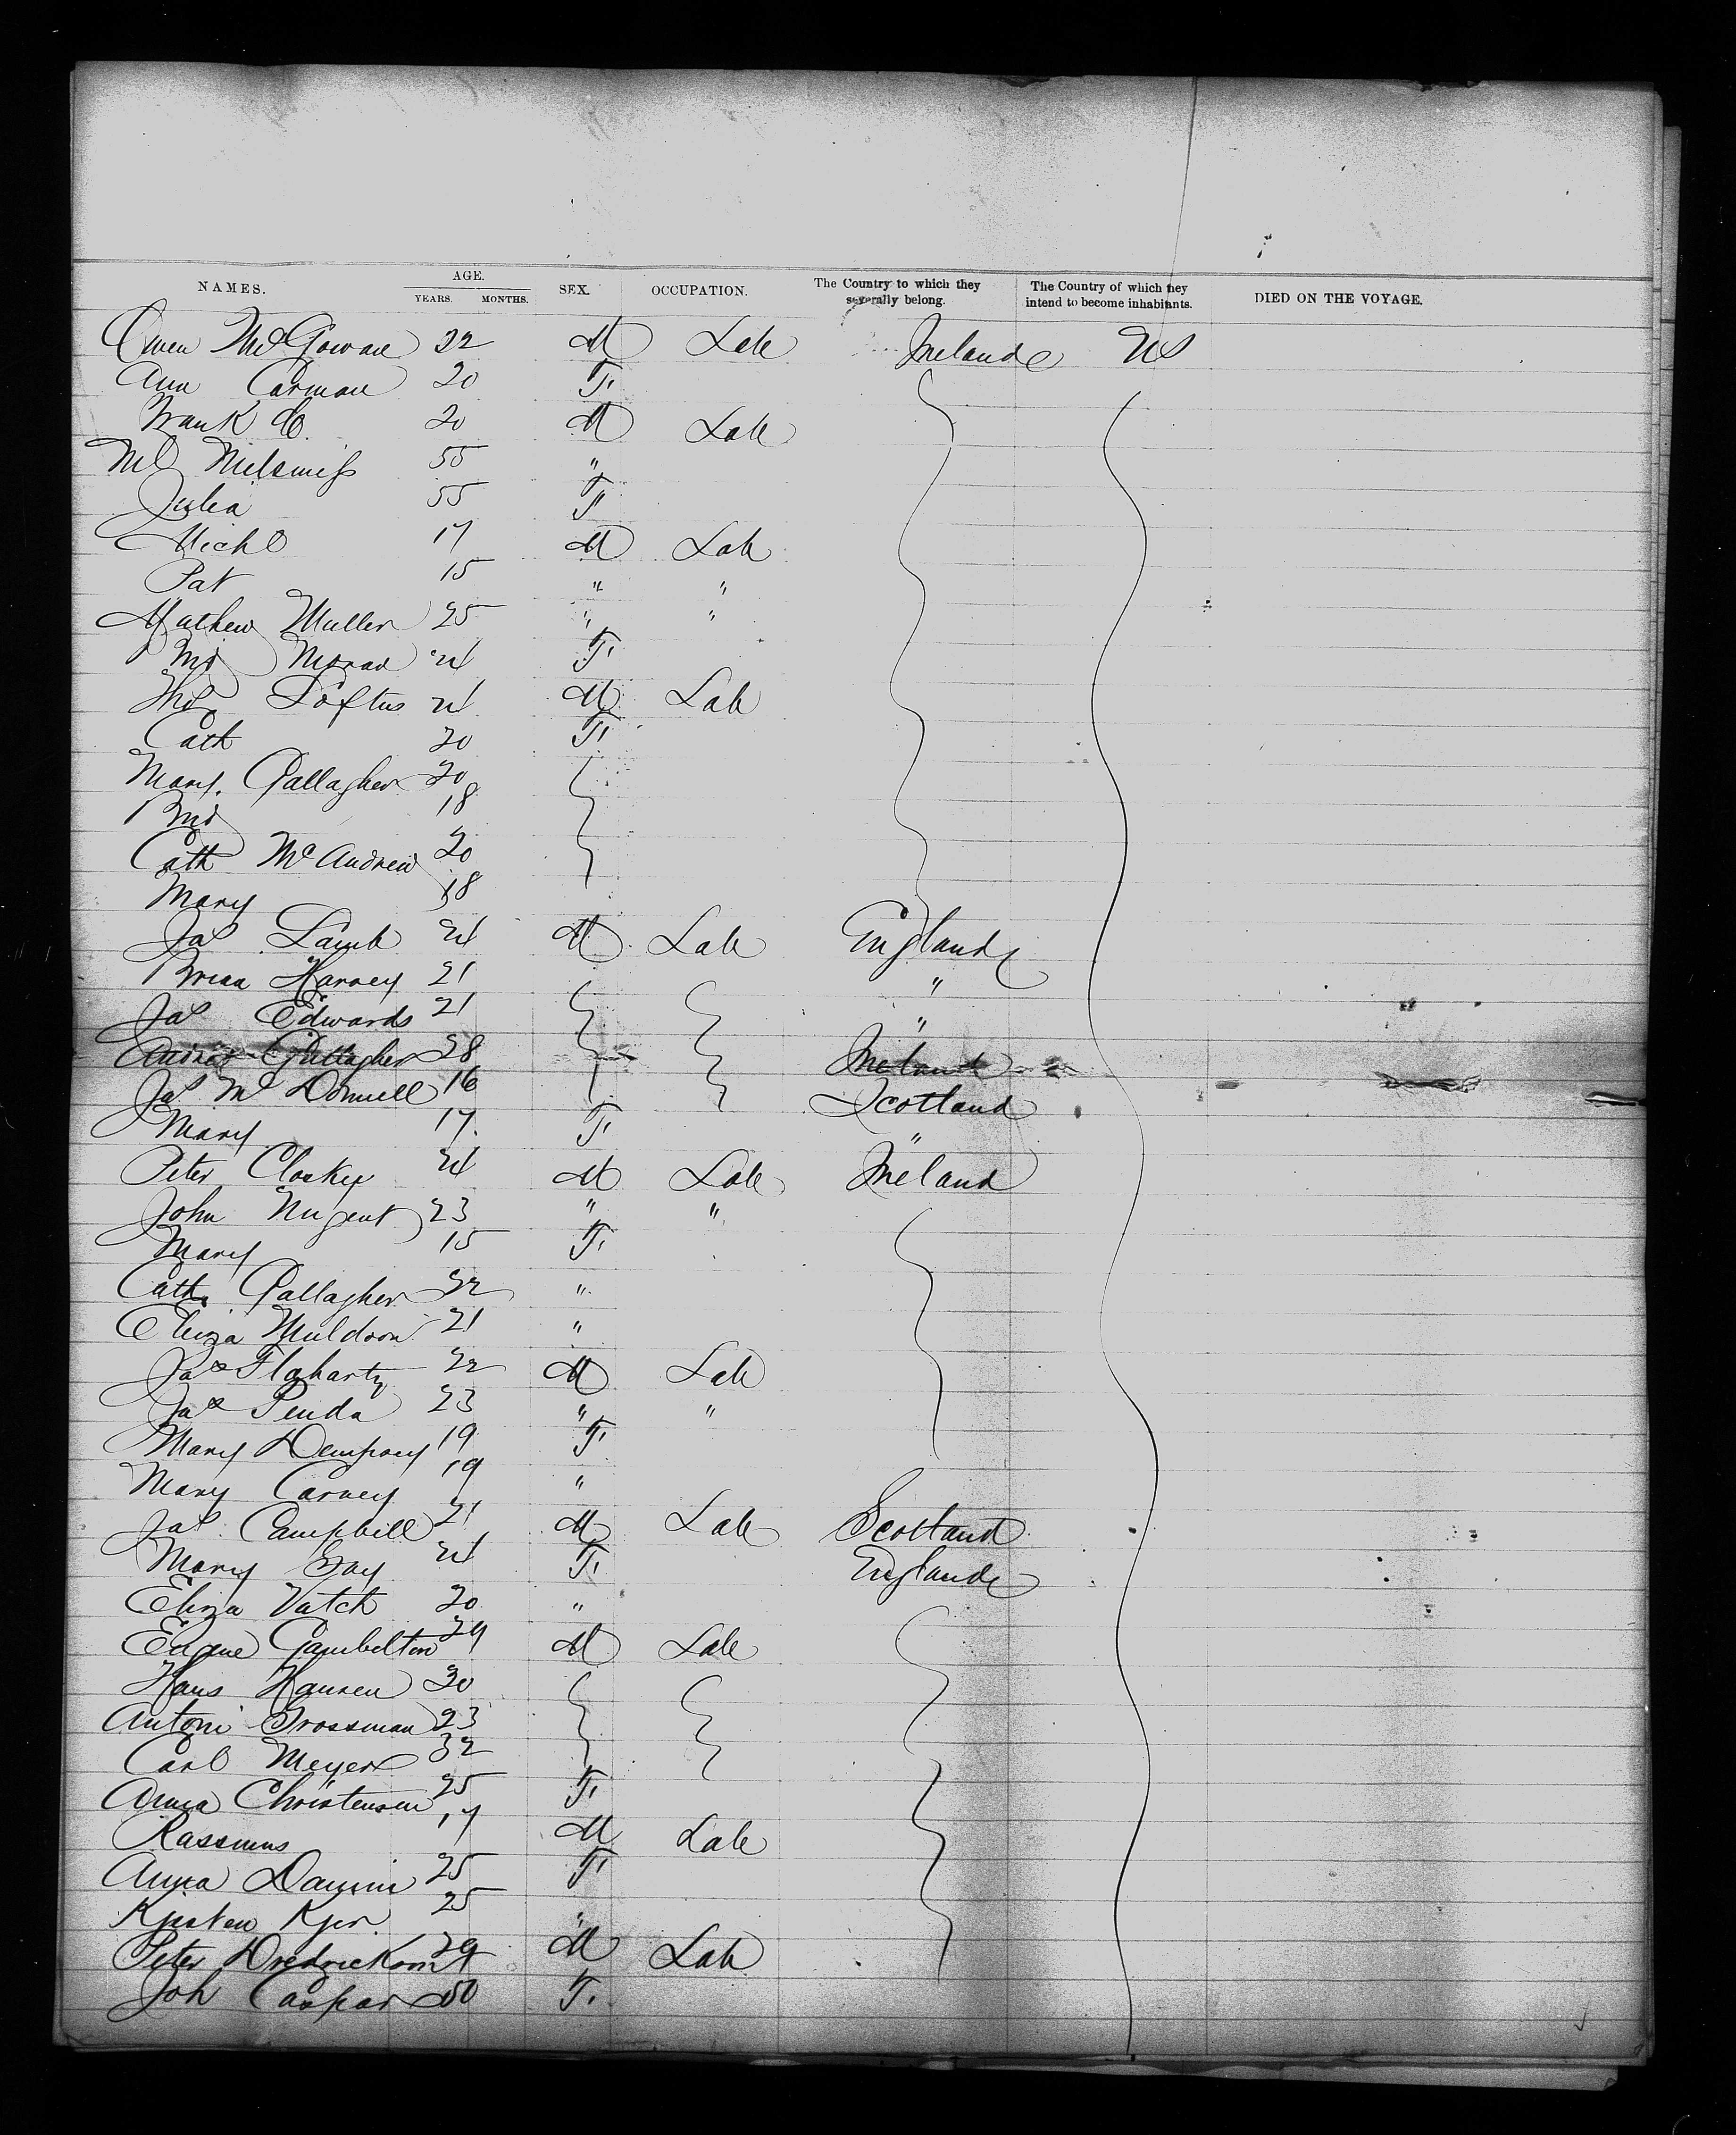 NAMES. AGE. YEARS. MONTHS. SEX. OCCUPATION. The Country to which they severally belong. The Country of which they intend to become inhabitants. DIED ON THE VOYAGE.
Owen McGowan 22 M Lab Ireland US
Ann Carman 20 F.
Frank do 20 M Lab
55 "
Julia 55 F
Michl 17 M Lab
Pat 15 " "
Mathew Muller 25 " "
Brid Moran 24 F.
Thos Loftus 24 M Lab
Cath 20 F.
Mary Gallagher 20
Brid 18
Cath McAndrew 20
Mary 18
Jas Lamb 24 M Lab England
Brian Harvey 21 "
Jas Edwards 21 "
Andrew Gallagher 28 Ireland
Jas McDonnell 16 Scotland
Mary 17 F. "
Peter Closkey 24 M Lab Ireland
John Nugent 23 " "
Mary 15 F.
Cath. Gallagher 22 "
Eliza Muldoon 21 "
Jas Flaharty 22 M Lab
Jas Penda 23 " "
Mary Dempsey 19 F.
Mary Carney 19 "
Jas Campbill 21 M Lab Scotland
Mary Gay 24 F. England
Eliza Vatch 20 "
Gambelton 29 M Lab
Hans Hansen 30
Antoni Grossman 23
Carl Meyer 32
Anna Christensen 25 F.
Rassmus 17 M Lab
Anna 25 F.
Kjer 25 "
Peter 29 M Lab
Joh Caspar 50 F.